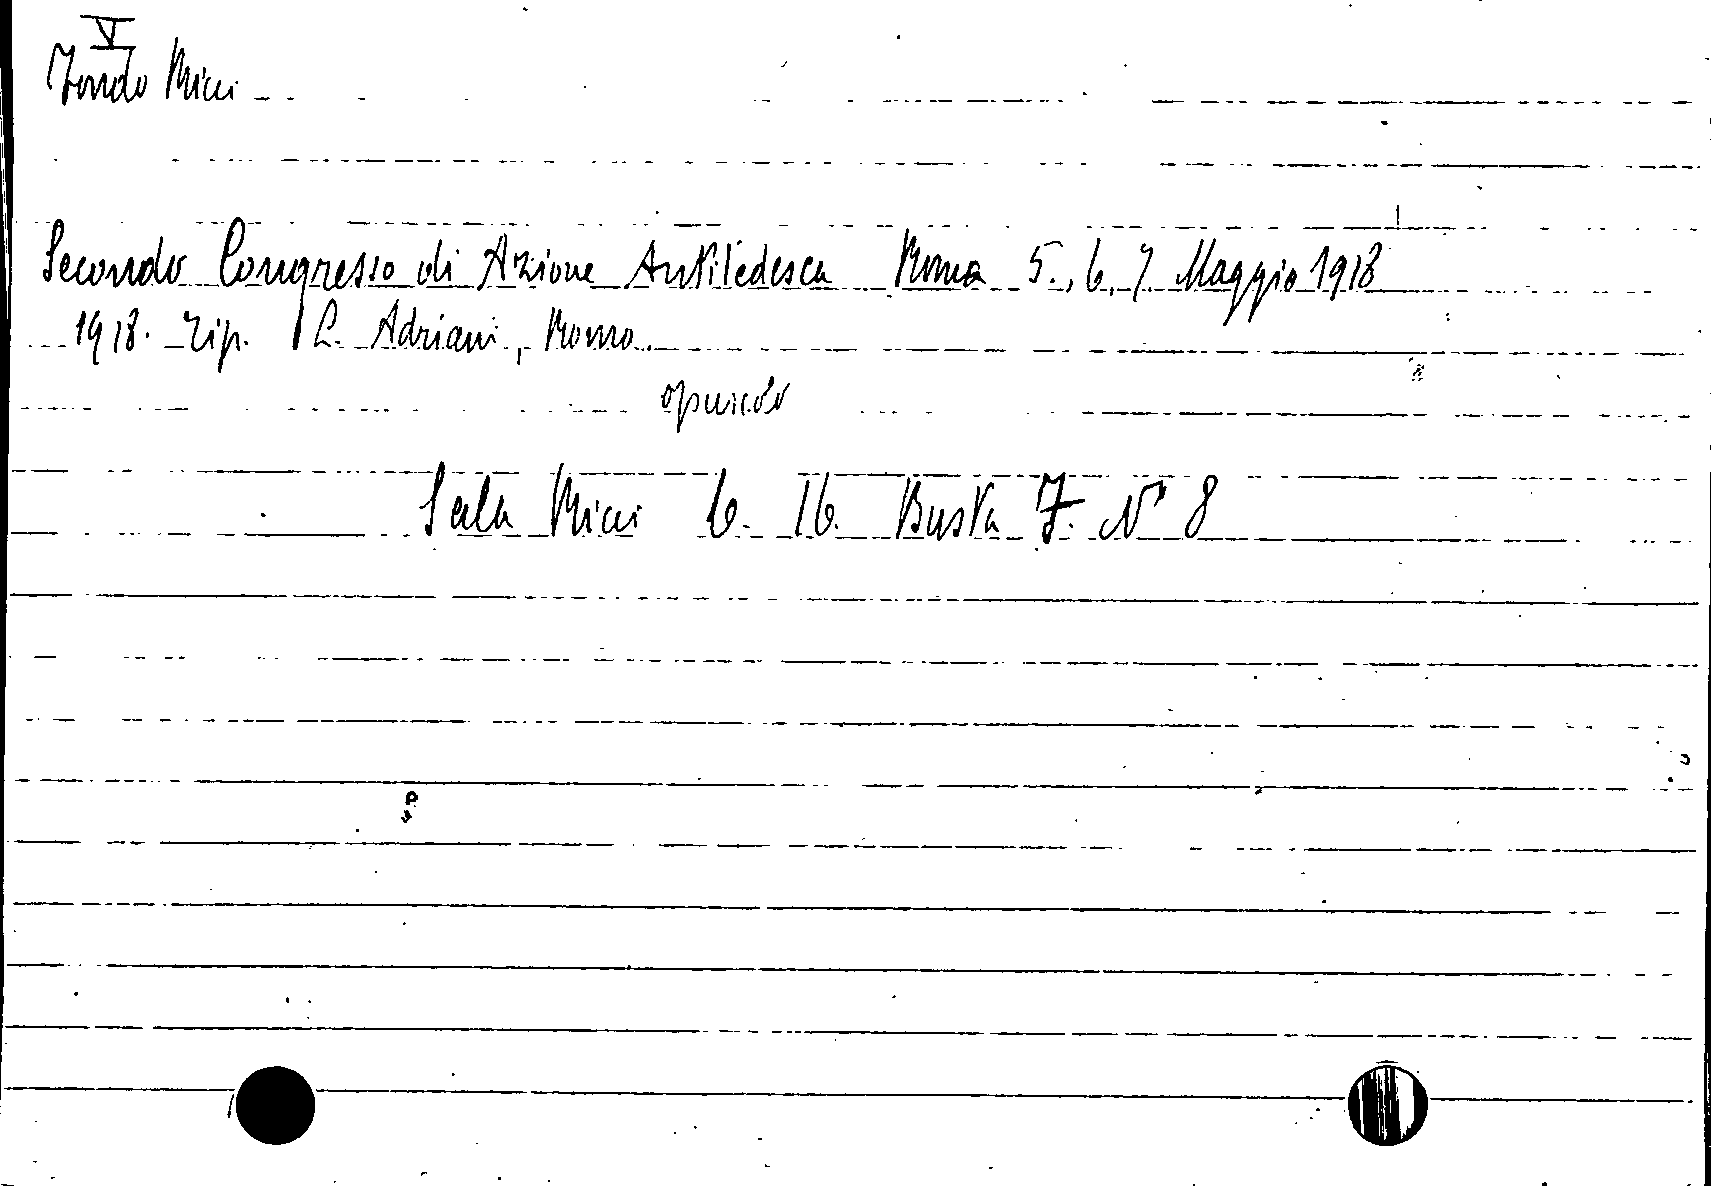 V
Fondo Micci
Secondo Congresso di Azione Antitedesca Roma 5., 6, 7 Maggio 1918
1918. Tip. C. Adriani, Roma.
opuscolo
Sala Micci 6. 16. Busta 7. N° 8